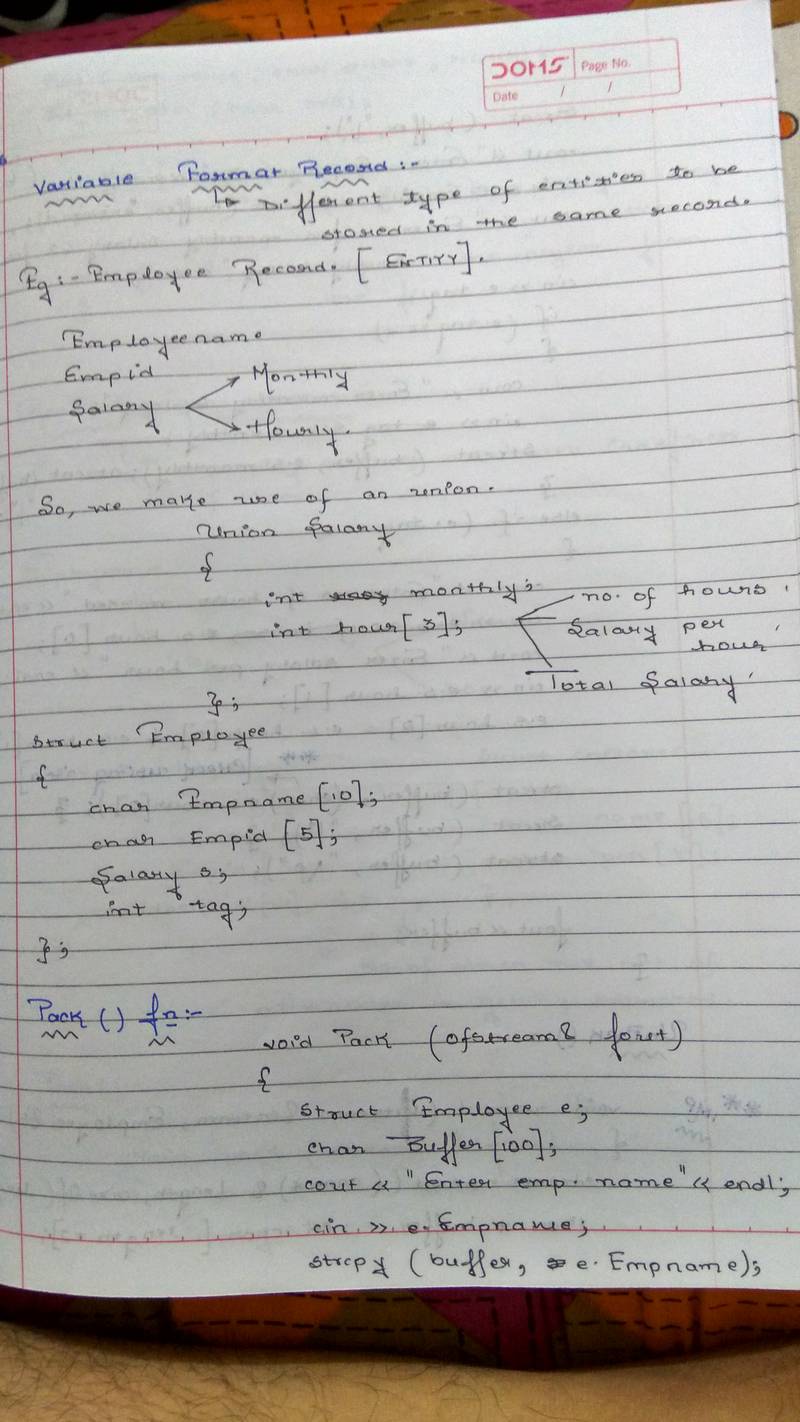 DOMS
Page No.
Date / /
Variable Format Record :-
Different type of entities to be
stored in the same record.
Eg :- Employee Record. [ENTITY].
Employeename
Empid
Salary
Monthly
Hourly.
So, we make use of an union.
Union Salary
{
int monthly;
int hour[3];
no. of hours
Salary per
hour
Total Salary
};
struct Employee
{
char Empname [10];
char Empid [5];
Salary s;
int tag;
};
Pack () fn:-
void Pack (ofstream& fout)
{
struct Employee e;
char Buffer [100];
cout << "Enter emp. name" << endl;
cin >> e.Empname;
strcpy (buffer, e.Empname);